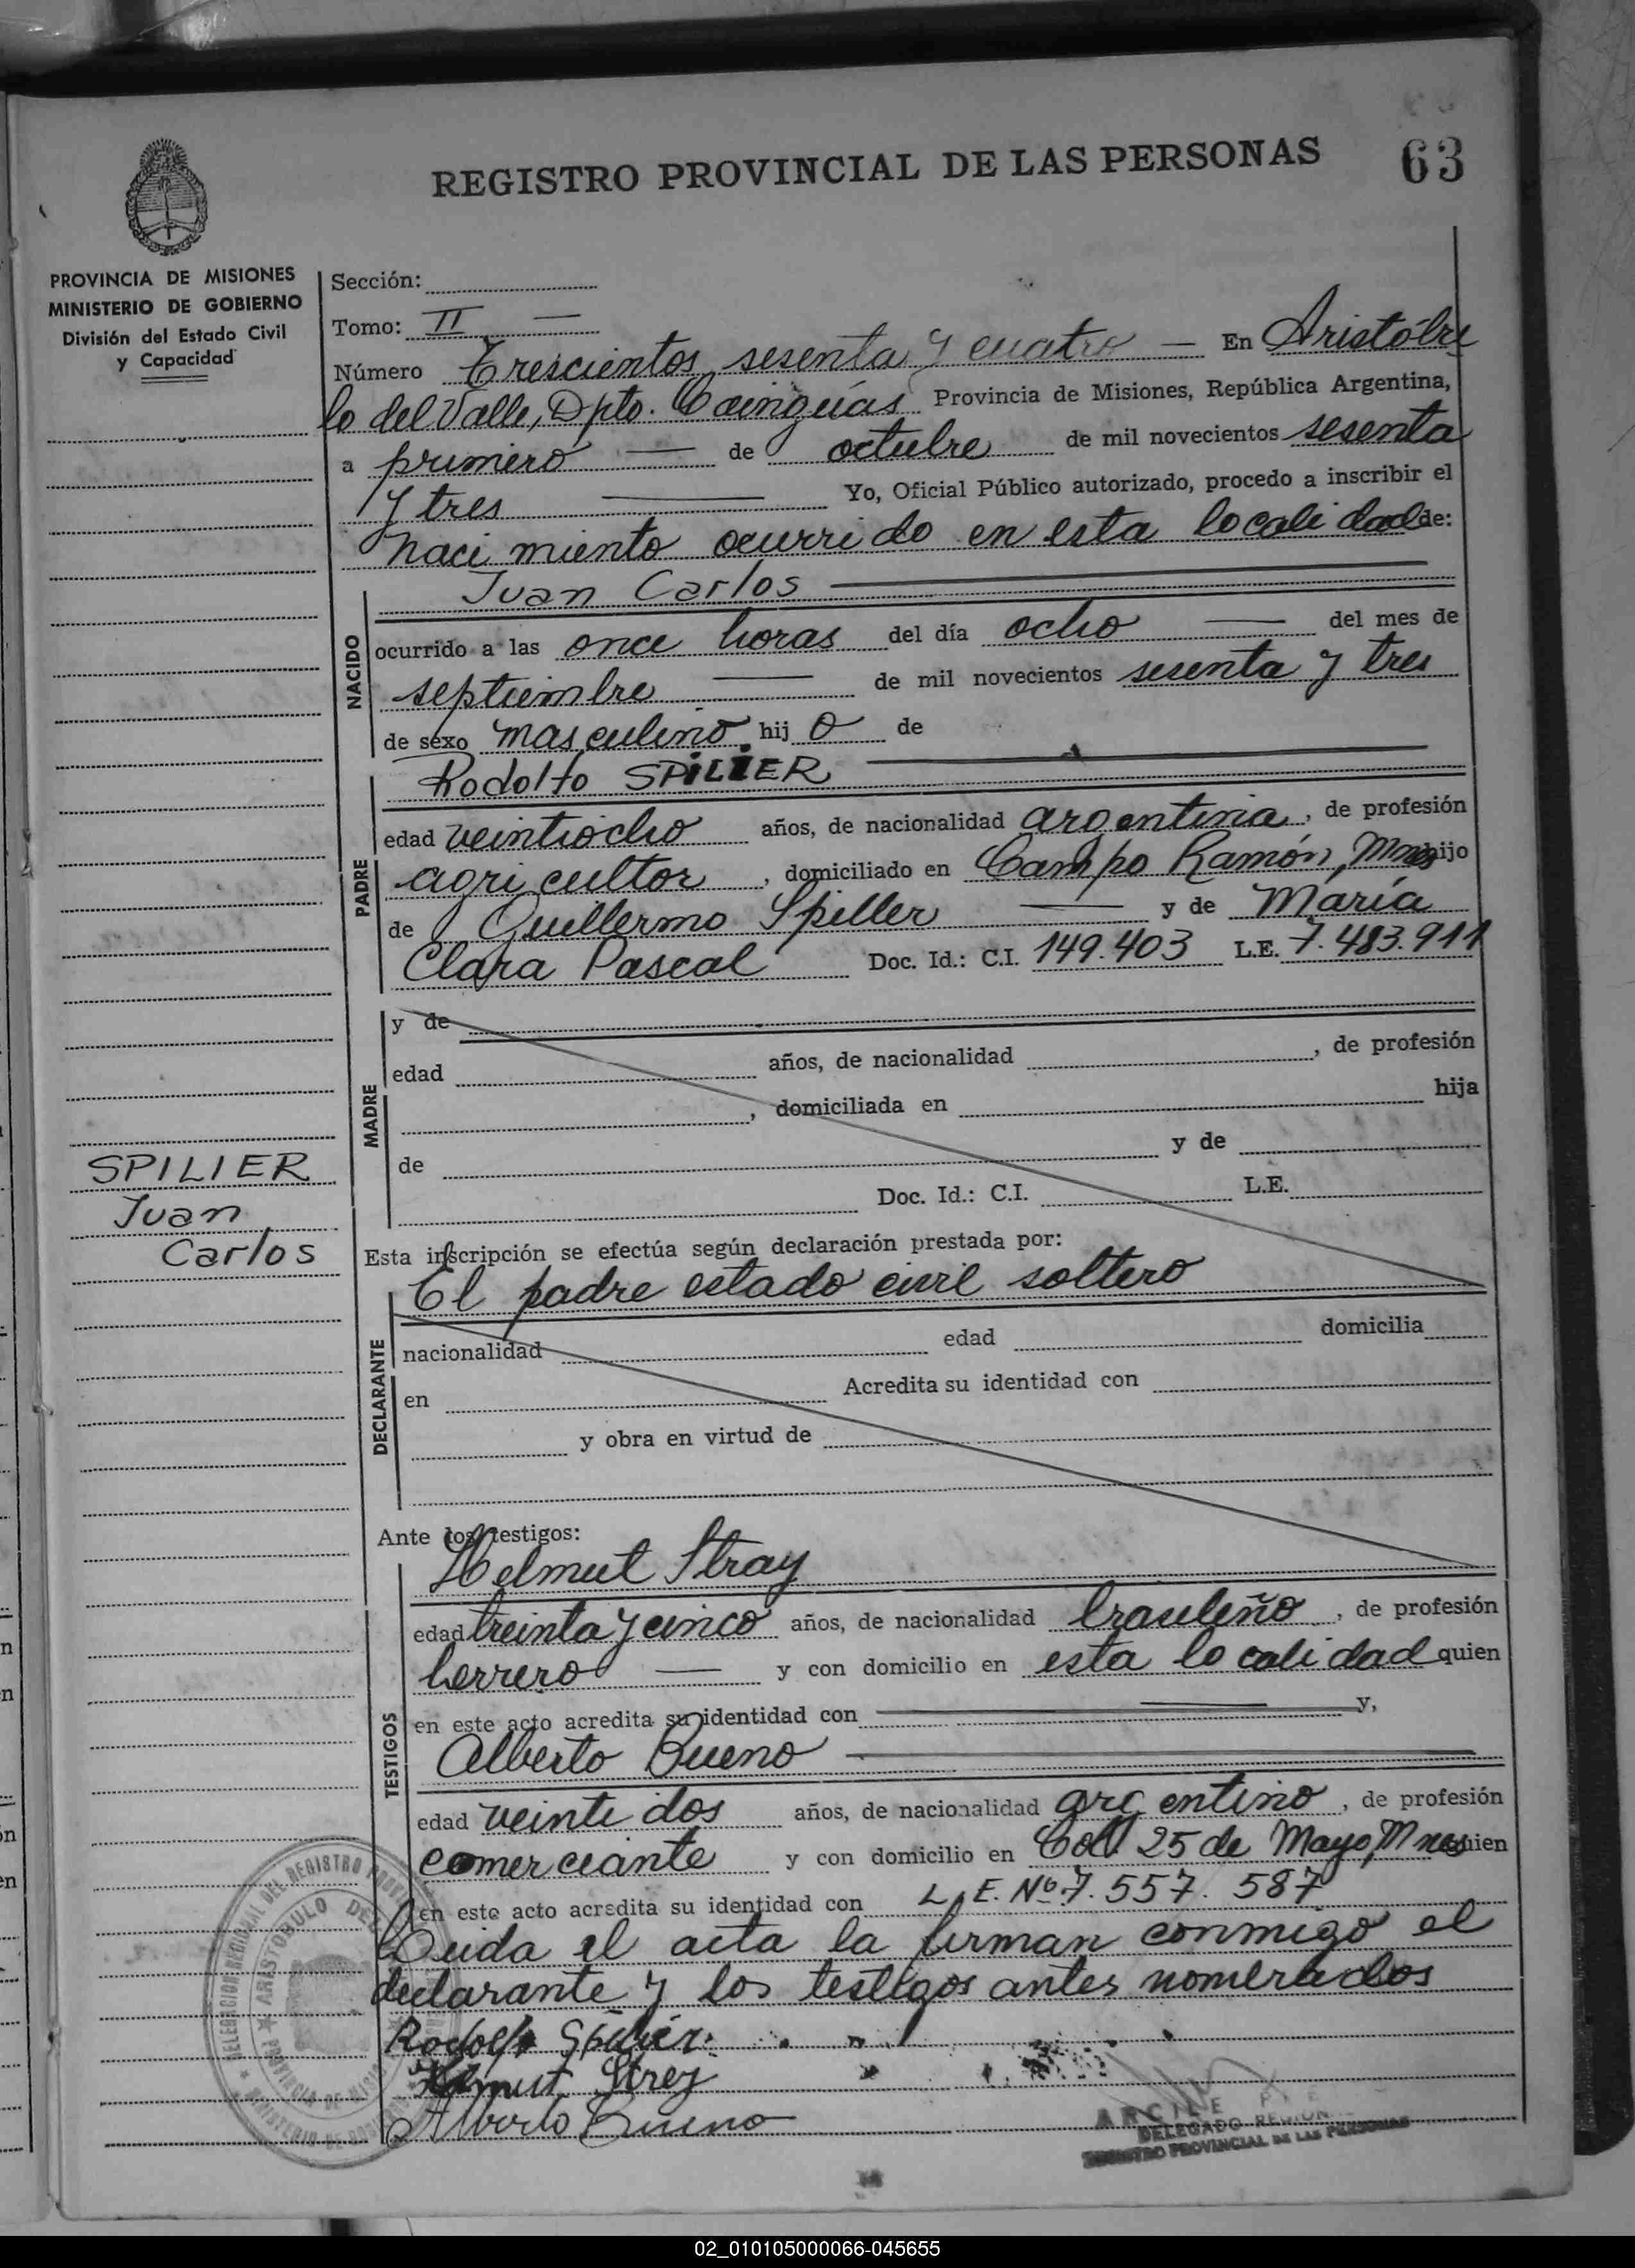 REGISTRO PROVINCIAL DE LAS PERSONAS 63
PROVINCIA DE MISIONES
MINISTERIO DE GOBIERNO
División del Estado Civil
y Capacidad
Sección:
Tomo: II —
Número Trescientos sesenta y cuatro — En Aristóbu
lo del Valle, Dpto. Cainguás Provincia de Misiones, República Argentina,
a primero — de octubre de mil novecientos sesenta
y tres — Yo, Oficial Público autorizado, procedo a inscribir el
nacimiento ocurrido en esta localidad de:
NACIDO
Juan Carlos
ocurrido a las once horas del día ocho — del mes de
septiembre — de mil novecientos sesenta y tres
de sexo masculino hijo de
PADRE
Rodolfo SPILIER
edad veintiocho años, de nacionalidad argentina, de profesión
agricultor, domiciliado en Campo Ramón, Mnes hijo
de Guillermo Spiller — y de María
Clara Pascal Doc. Id.: C.I. 149.403 L.E. 7.483.911
MADRE
y de
edad años, de nacionalidad , de profesión
, domiciliada en hija
de y de
Doc. Id.: C.I. L.E.
SPILIER
Juan
Carlos
Esta inscripción se efectúa según declaración prestada por:
El padre estado civil soltero
DECLARANTE
nacionalidad edad domicilia
en Acredita su identidad con
y obra en virtud de
Ante los testigos:
TESTIGOS
Helmut Stray
edad treinta y cinco años, de nacionalidad brasileño, de profesión
herrero — y con domicilio en esta localidad quien
en este acto acredita su identidad con — y,
Alberto Bueno
edad veintidos años, de nacionalidad argentino, de profesión
comerciante y con domicilio en Col. 25 de Mayo, Mnes quien
en este acto acredita su identidad con L.E. Nº 7.557.587
Leida el acta la firman conmigo el
declarante y los testigos antes nomerados
Rodolfo Spilier
Helmut Strey
Alberto Bueno
DELEGADO REGIONAL
REGISTRO PROVINCIAL DE LAS PERSONAS
02_010105000066-045655